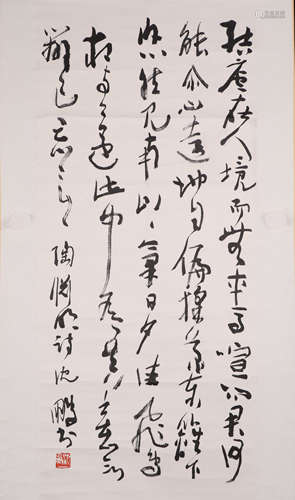 結廬在人境而無車馬喧问君何
能尔心遠地自偏採菊东籬下
悠然见南山々氣日夕佳飛鸟
相与还此中有真意欲
辨已忘言 陶渊明诗 沈鹏书